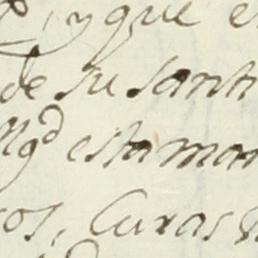 , y que e
de su santi
Mgd esta man
cos, Curas